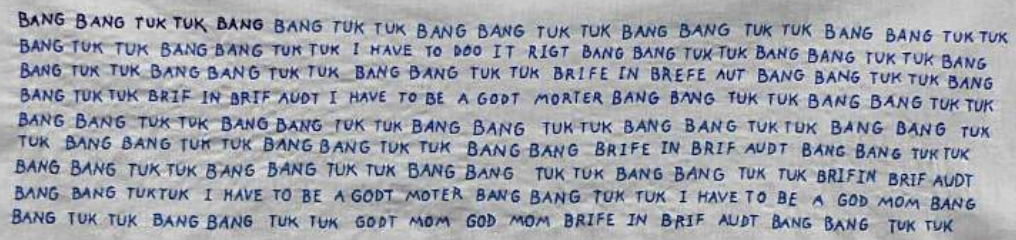 BANG BANG TUK TUK BANG BANG TUK TUK BANG BANG TUK TUK BANG BANG TUK TUK BANG BANG TUK TUK
BANG TUK TUK BANG BANG TUK TUK I HAVE TO DOO IT RIGT BANG BANG TUK TUK BANG BANG TUK TUK BANG
BANG TUK TUK BANG BANG TUK TUK BANG BANG TUK TUK BRIFE IN BREFE AUT BANG BANG TUK TUK BANG
BANG TUK TUK BRIF IN BRIF AUDT I HAVE TO BE A GODT MORTER BANG BANG TUK TUK BANG BANG TUK TUK
BANG BANG TUK TUK BANG BANG TUK TUK BANG BANG TUK TUK BANG BANG TUK TUK BANG BANG TUK
TUK BANG BANG TUK TUK BANG BANG TUK TUK BANG BANG BRIFE IN BRIF AUDT BANG BANG TUK TUK
BANG BANG TUK TUK BANG BANG TUK TUK BANG BANG TUK TUK BANG BANG TUK TUK BRIFIN BRIF AUDT
BANG BANG TUKTUK I HAVE TO BE A GODT MOTER BANG BANG TUK TUK I HAVE TO BE A GOD MOM BANG
BANG TUK TUK BANG BANG TUK TUK GODT MOM GOD MOM BRIFE IN BRIF AUDT BANG BANG TUK TUK